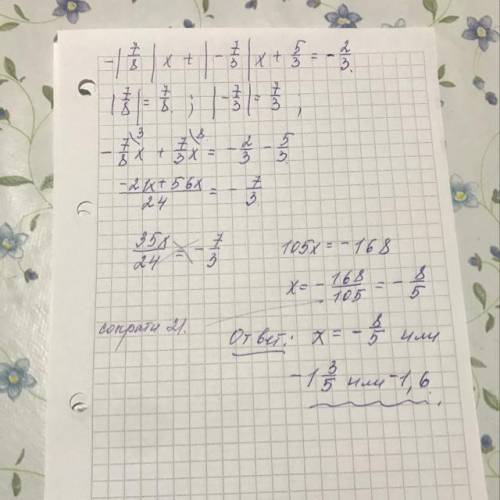 -|7/8|x + |-7/3|x + 5/3 = -2/3.
|7/8| = 7/8 ; |-7/3| = 7/3 ;
-7/8\³x + 7/3\⁸x = -2/3 - 5/3
(-21x+56x)/24 = -7/3
35x/24 = -7/3
105x = -168
x = -168/105 = -8/5
21.
Ответ: x = -8/5 или
-1 3/5 или -1,6.